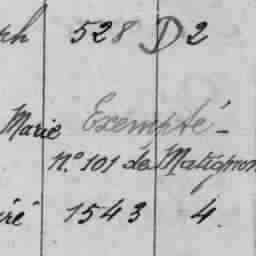 528 D 2
Marie Exempté
n.° 101 de Matignon
1543 4